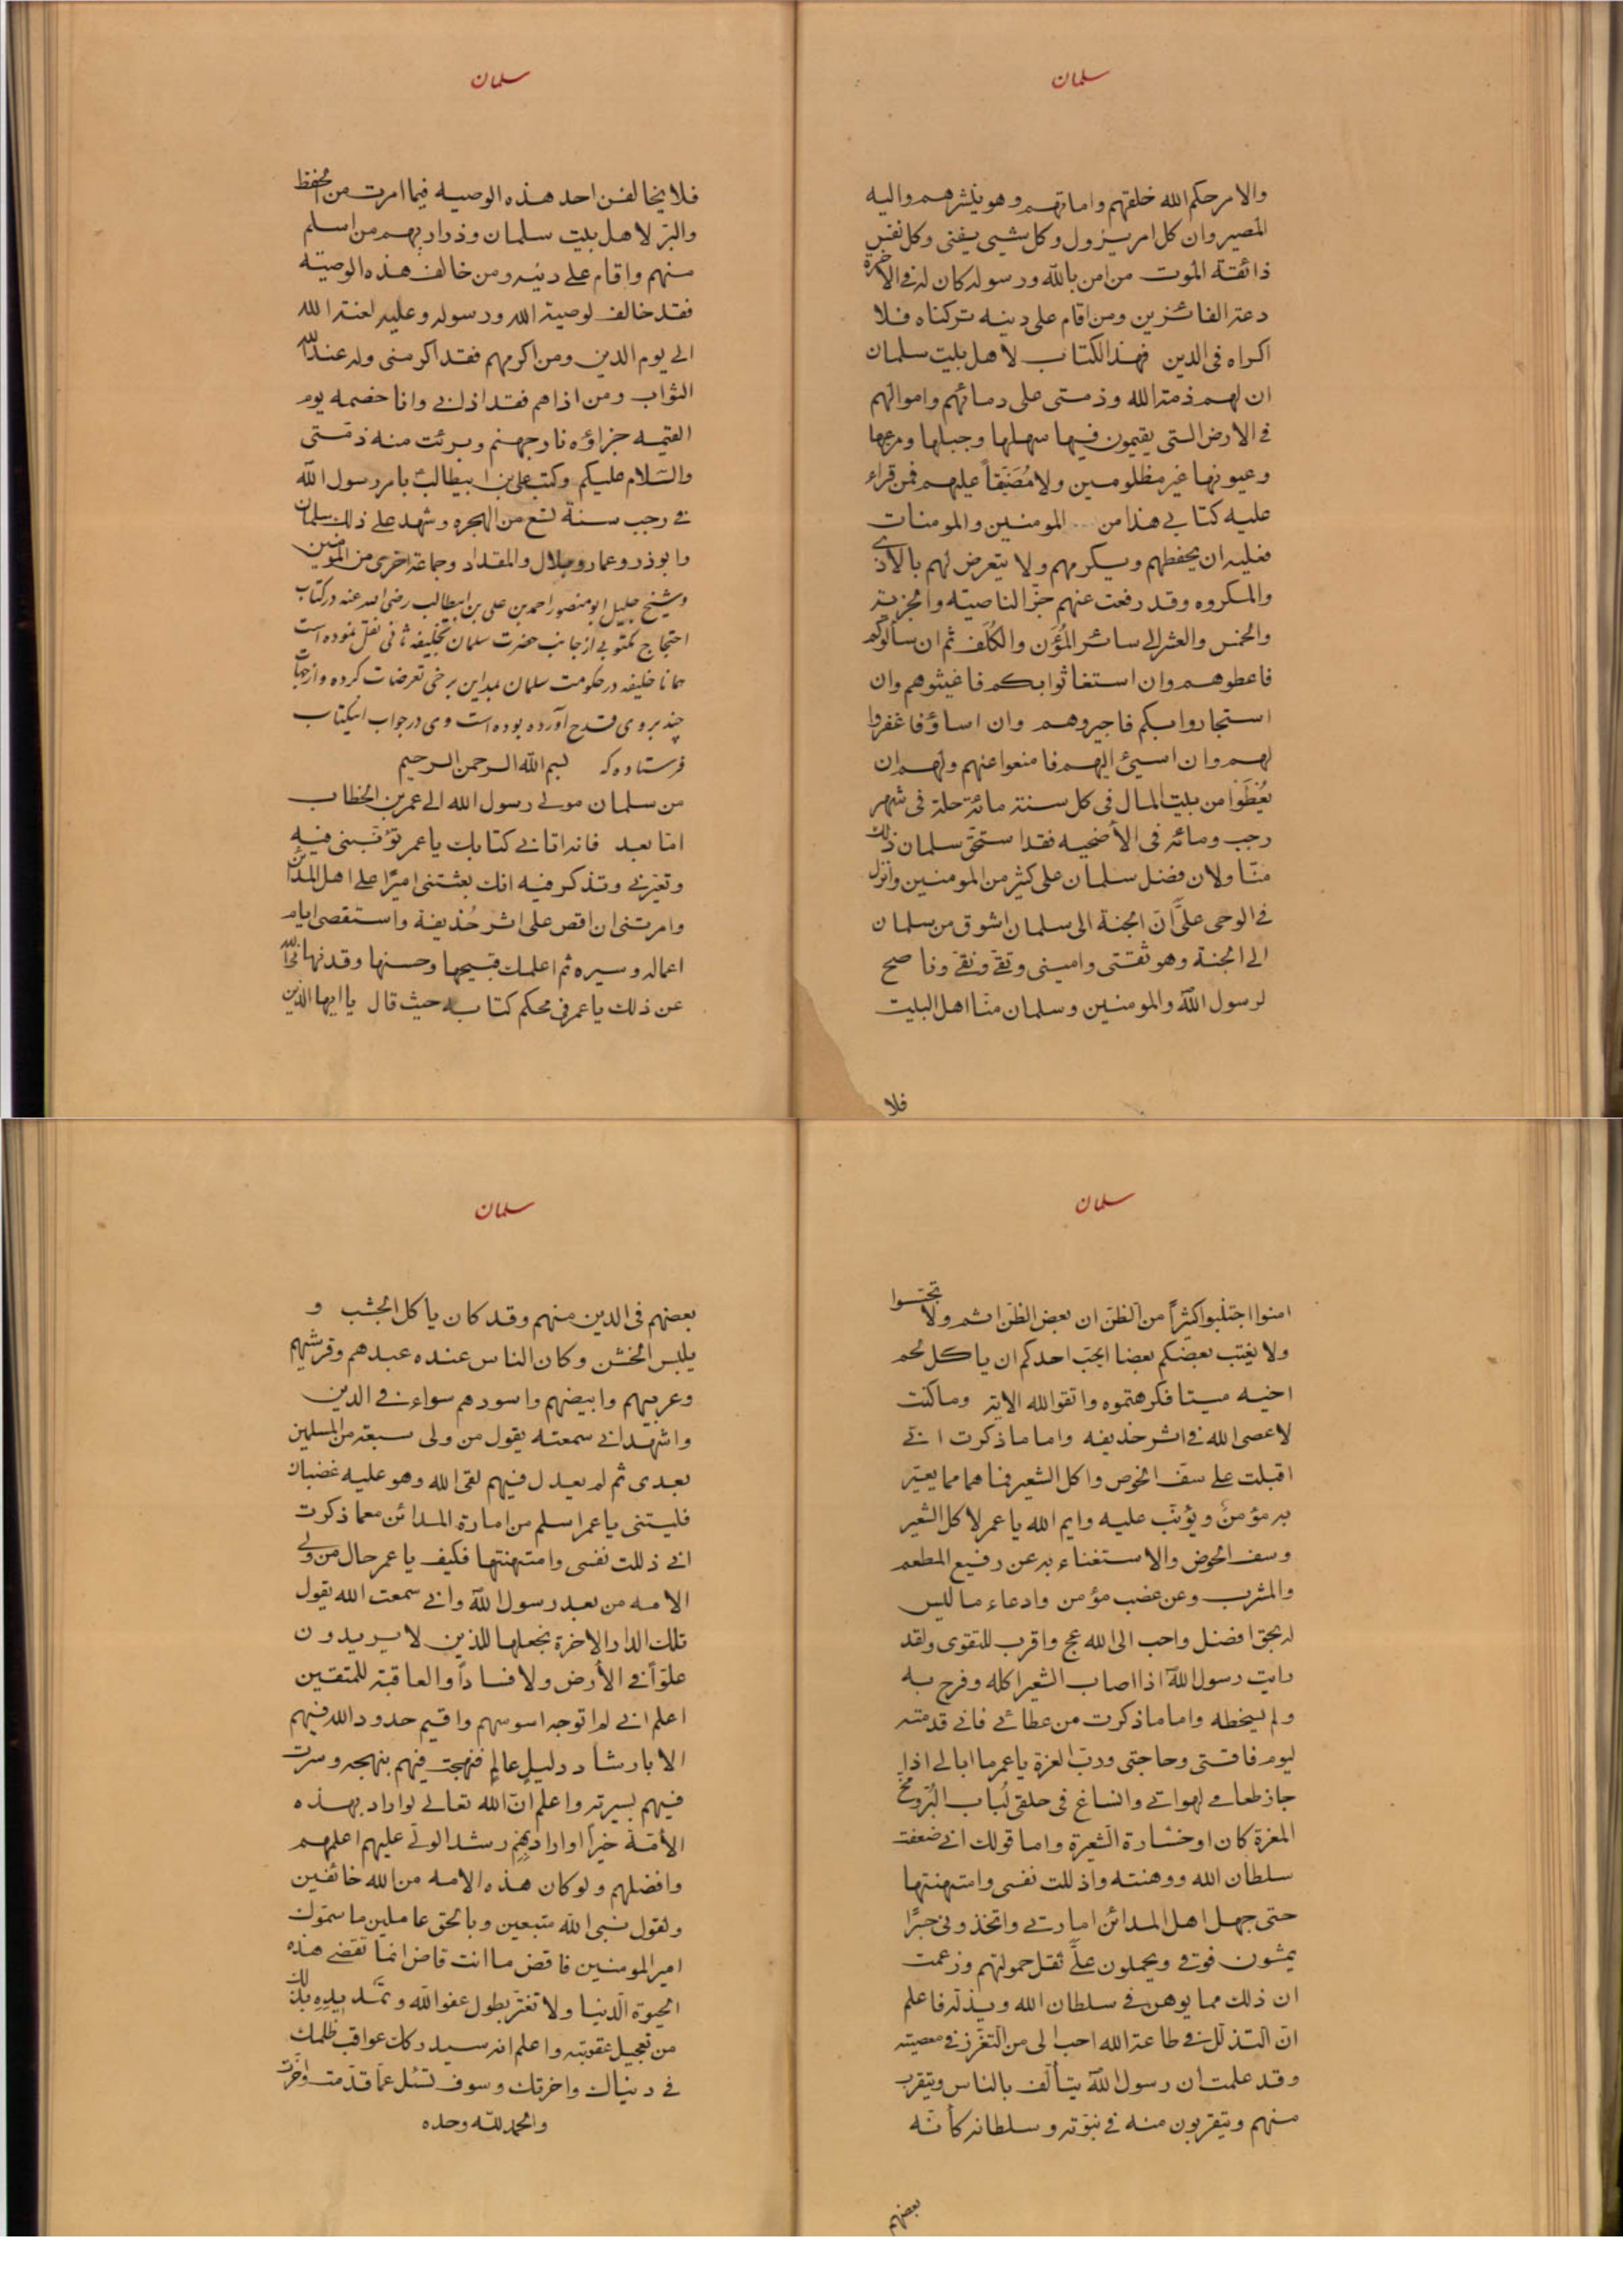 سلمان
والامر حكم الله خلقهم واماتهم وهو ينشرهم واليه
المصير وان كل امر يزول وكل شيى يفنى وكل نفس
ذائقة الموت من امن بالله ورسوله كان له فى الآخرة
دعة الفائزين ومن اقام على دينه تركناه فلا
اكراه فى الدين فهذا الكتاب لاهل بيت سلمان
ان لهم ذمة الله وذمتى على دمائهم واموالهم
فى الارض التى يقيمون فيها سهلها وجبلها ومرعيها
وعيونها غير مظلومين ولا مُضَيّقاً عليهم فمن قراء
عليه كتابى هذا من المومنين والمومنات
فعليه ان يحفظهم ويكرمهم ولا يتعرض لهم بالاذى
والمكروه وقد رفعت عنهم جزّ الناصية والجزية
والخمس والعشر الى سائر المُؤَن والكُلَف ثم ان سألوكم
فاعطوهم وان استغاثوا بكم فاغيثوهم وان
استجاروا بكم فاجيروهم وان اساؤ فاغفروا
لهم وان اسيئ اليهم فامنعوا عنهم ولهم ان
يُعْطَوْا من بيت المال فى كل سنة مائة حلة فى شهر
رجب ومائة فى الأضحيه فقد استحق سلمان ذلك
منّا ولان فضل سلمان على كثير من المومنين وانزل
فى الوحى علىَّ انّ الجنة الى سلمان اشوق من سلمان
الى الجنة وهو ثقتى وامينى وتقى ونقى وناصح
لرسول اللّه والمومنين وسلمان منّا اهل البيت
فلا
سلمان
فلا يخالفن احد هذه الوصيه فيما امرت من الحفظ
والبرّ لاهل بيت سلمان وذراريهم من اسلم
منهم واقام على دينه ومن خالف هذه الوصيّه
فقد خالف لوصية الله ورسوله وعليه لعنة الله
الى يوم الدين ومن اكرمهم فقد اكرمنى وله عند اللّه
الثواب ومن اذاهم فقد اذانى وانا خصمه يوم
القيمه جزاؤه نار جهنم وبرئت منه ذمّتى
والسّلام عليكم وكتب على بن ابيطالب بامر رسول اللّه
فى رجب سنة تسع من الهجره وشهد على ذلك سلمان
وابوذر وعمار وبلال والمقداد وجماعة اخرى من المومنين
وشيخ جليل ابومنصور احمد بن على بن ابيطالب رضى الله عنه در كتاب
احتجاج مكتوبى از جانب حضرت سلمان بخليفه ثانى نقل نموده است
همانا خليفه در حكومت سلمان بمداين برخى تعرضات كرده و از جهات
چند بر وى قدح آورده بوده است وى در جواب اينكتاب
فرستاده كه بسم اللّه الرحمن الرحيم
من سلمان مولى رسول الله الى عمر بن الخطاب
امّا بعد فانه اتانى كتابك يا عمر تؤنّبنى فيه
وتعيّرنى وتذكر فيه انك بعثتنى اميرًا على اهل المدائن
وامرتنى ان اقص على اثر حُذيفة واستقصى ايام
اعماله وسيره ثم اعلمك قبيحها وحسنها وقد نهانى اللّه
عن ذلك يا عمر فى محكم كتابه حيث قال يا ايها الذين
سلمان
امنوا اجتنبوا كثيراً من الظنّ ان بعض الظنّ اثم ولا تجسّسوا
ولا يغتب بعضكم بعضا ايحب احدكم ان ياكل لحم
اخيه ميتا فكرهتموه واتقوا الله الاية وما كنت
لاعصى الله فى اثر حذيفه واما ما ذكرت انى
اقبلت على سفّ الخوص واكل الشعير فما هما مما يعيّر
به مؤمنٌ ويؤنّب عليه وايم الله يا عمر لاكل الشعير
وسف الخوص والاستغناء به عن رفيع المطعم
والمشرب وعن غصب مؤمن وادعاء ما ليس
له بحق افضل واحب الى الله عج واقرب للتقوى ولقد
رايت رسول اللّه اذا اصاب الشعير اكله وفرح به
ولم يسخطه واما ما ذكرت من عطائى فانى قدمته
ليوم فاقتى وحاجتى وربّ العزة يا عمر ما ابالى اذا
جاز طعامى لهواتى وانساغ فى حلقى لُباب البُرّ ومخّ
المعزة كان او خشارة الشعيرة واما قولك انى ضعفت
سلطان الله ووهنته واذللت نفسى وامتهنتها
حتى جهل اهل المدائن امارتى واتخذونى جسرًا
يمشون فوقى ويحملون علىَّ ثقل حمولتهم وزعمت
ان ذلك مما يوهن فى سلطان الله ويذله فاعلم
انّ التذلل فى طاعة الله احب الى من التعزّز فى معصيته
وقد علمت ان رسول اللّه يتألّف بالناس ويتقرب
منهم ويتقربون منه فى نبوّته وسلطانه كأنّه
بعضهم
سلمان
بعضهم فى الدين منهم وقد كان ياكل الجشب و
يلبس الخشن وكان الناس عنده عبدهم وقرشيّهم
وعربيهم وابيضهم واسودهم سواء فى الدين
واشهد انى سمعته يقول من ولى سبعة من المسلمين
بعدى ثم لم يعدل فيهم لقى الله وهو عليه غضبان
فليتنى يا عمر اسلم من امارة المدائن مع ما ذكرت
انى ذللت نفسى وامتهنتها فكيف يا عمر حال من ولى
الامه من بعد رسول اللّه وانى سمعت الله يقول
تلك الدار الاخرة نجعلها للذين لا يريدون
علوّاً فى الأرض ولا فساداً والعاقبة للمتقين
اعلم انى لم اتوجه اسوسهم واقيم حدود الله فيهم
الا بارشاد دليلٍ عالمٍ فنهجت فيهم بنهجه وسرت
فيهم بسيرته واعلم انّ الله تعالى لو اراد بهذه
الأمّة خيراً او اراد بِهِم رشدا لولّى عليهم اعلمهم
وافضلهم ولو كان هذه الامه من الله خائفين
ولقول نبى اللّه متبعين وبالحق عاملين ما سمّوك
امير المومنين فاقض ما انت قاض انما تقضى هذه
الحيوة الدّنيا ولا تغترّ بطول عفو اللّه وتمّد يدِهِ بذلك
من تعجيل عقوبته واعلم انه سيدركك عواقب ظلمك
فى دنياك واخرتك وسوف تسئل عمّا قدّمت واخّرت
والحمد للّه وحده